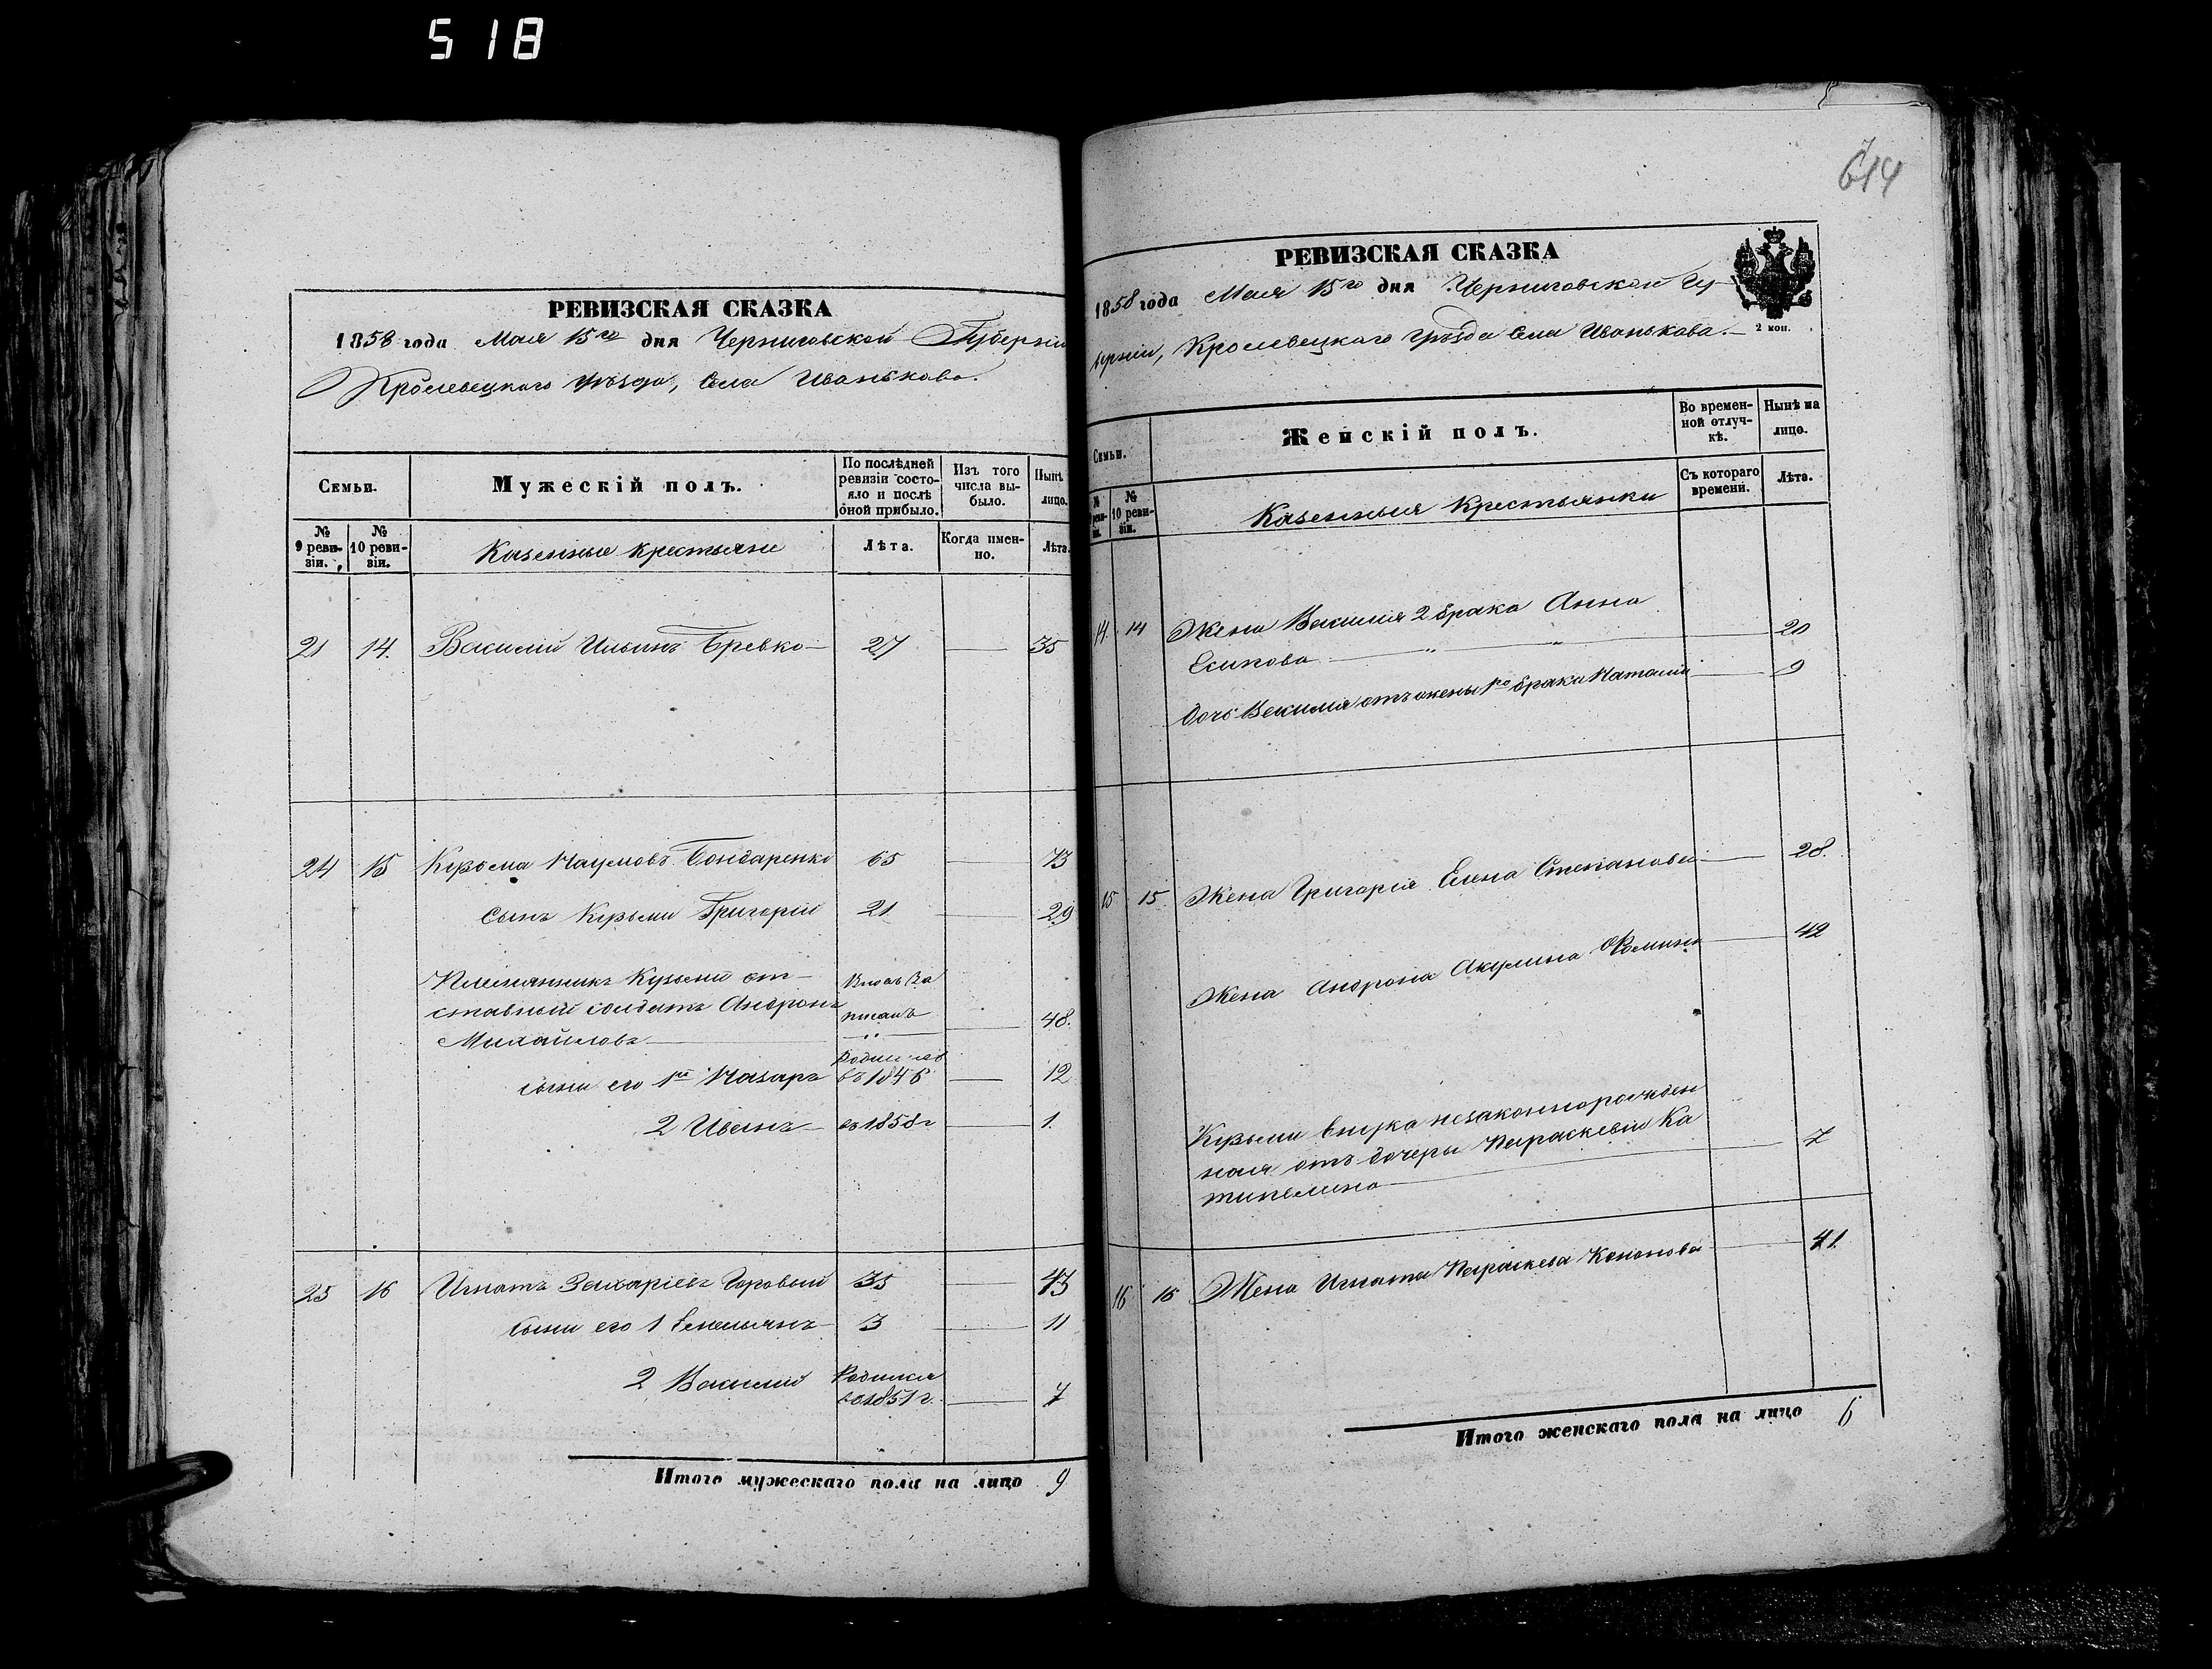 518
РЕВИЗСКАЯ СКАЗКА
1858 года Мая 15го дня Черниговской Губерніи
Кролевецкаго уѣзда, Села Иванькова.
Семьи.
Мужескій полъ.
По послѣдней ревизіи состояло и послѣ оной прибыло.
Изъ того числа выбыло.
Нынѣ лицо.
№ 9 ревизіи.
№ 10 ревизіи.
Казенные крестьяне
Лѣта.
Когда именно.
Лѣта.
21 14. Василий Ильинъ Бревко 27 35
24 15 Кузьма Наумовъ Бондаренко 65 73
сынъ Кузьмы Григорій 21 29
Племянникъ Кузьмы от-
ставный солдатъ Андронъ
Михайловъ 48.
сыны его 1й Назаръ въ 1846 12
2 Иванъ въ 1858 г 1.
25 16 Игнатъ Захаріевъ Горовый 35 43
сыны его 1 Емельянъ 3 11
2 Василий Родился
в 1851 г. 7
Итого мужескаго пола на лицо 9
614
РЕВИЗСКАЯ СКАЗКА
1858 года Мая 15го дня Черниговской Гу-
берніи, Кролевецкаго уѣзда Села Иванькова.
2 коп.
Семьи.
Женскій полъ.
Во временной отлучкѣ.
Нынѣ на лицо.
№ 10 ревизіи.
Казенныя Крестьянки
Съ котораго времени.
Лѣта.
14 14 Жена Василия 2 брака Анна
Есипова 20
дочь Василия отъ жены 1го брака Наталия 9
15 15 Жена Григорія Елена Степанова 28.
Жена Андрона Акулина Фомина 42
Кузьмы внука незаконнорожден
ная отъ дочеры Параскевіи Ка
7
16 16 Жена Игната Параскева Кононова 41.
Итого женскаго пола на лицо 6